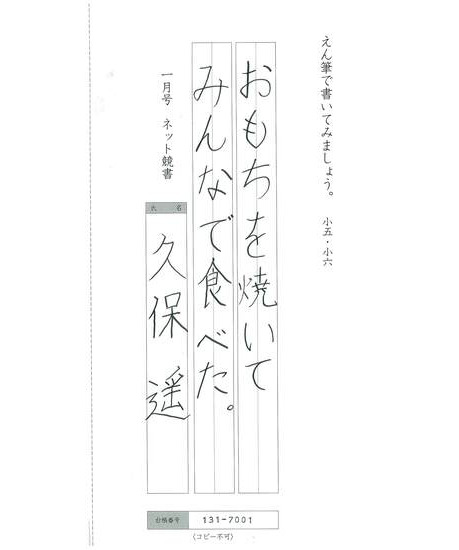 えん筆で書いてみましょう。 小五・小六
おもちを焼いて
みんなで食べた。
一月号 ネット競書
氏名
久保 遥
台帳番号 131-7001
(コピー不可)